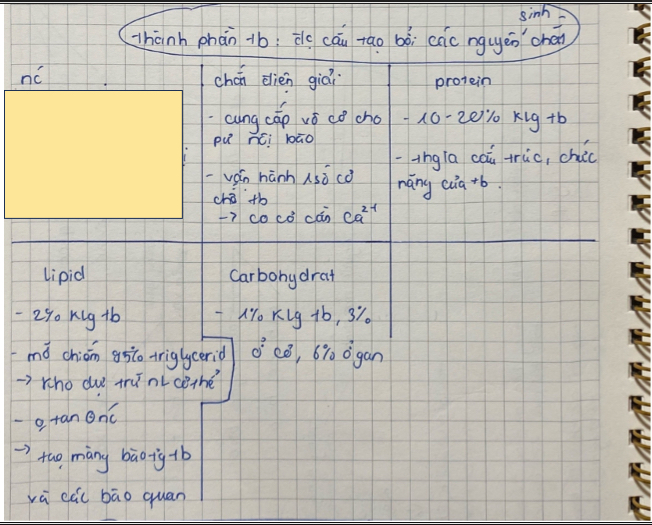 sinh -
Thành phần tb: đc cấu tạo bởi các nguyên chất
nc
chất điện giải:
- cung cấp vô cơ cho
pư nội bào
- vận hành 1 số cơ
chế tb
-> co cơ cần Ca²⁺
protein
- 10-20% klg tb
- thgia cấu trúc, chức
năng của tb.
lipid
- 2% klg tb
- mỡ chiếm 95% triglycerid
-> kho dự trữ nL cơ thể
- tan nc
-> tạo màng bào tg tb
và các bào quan
Carbohydrat
- 1% klg tb, 3%
ở cơ, 6% ở gan